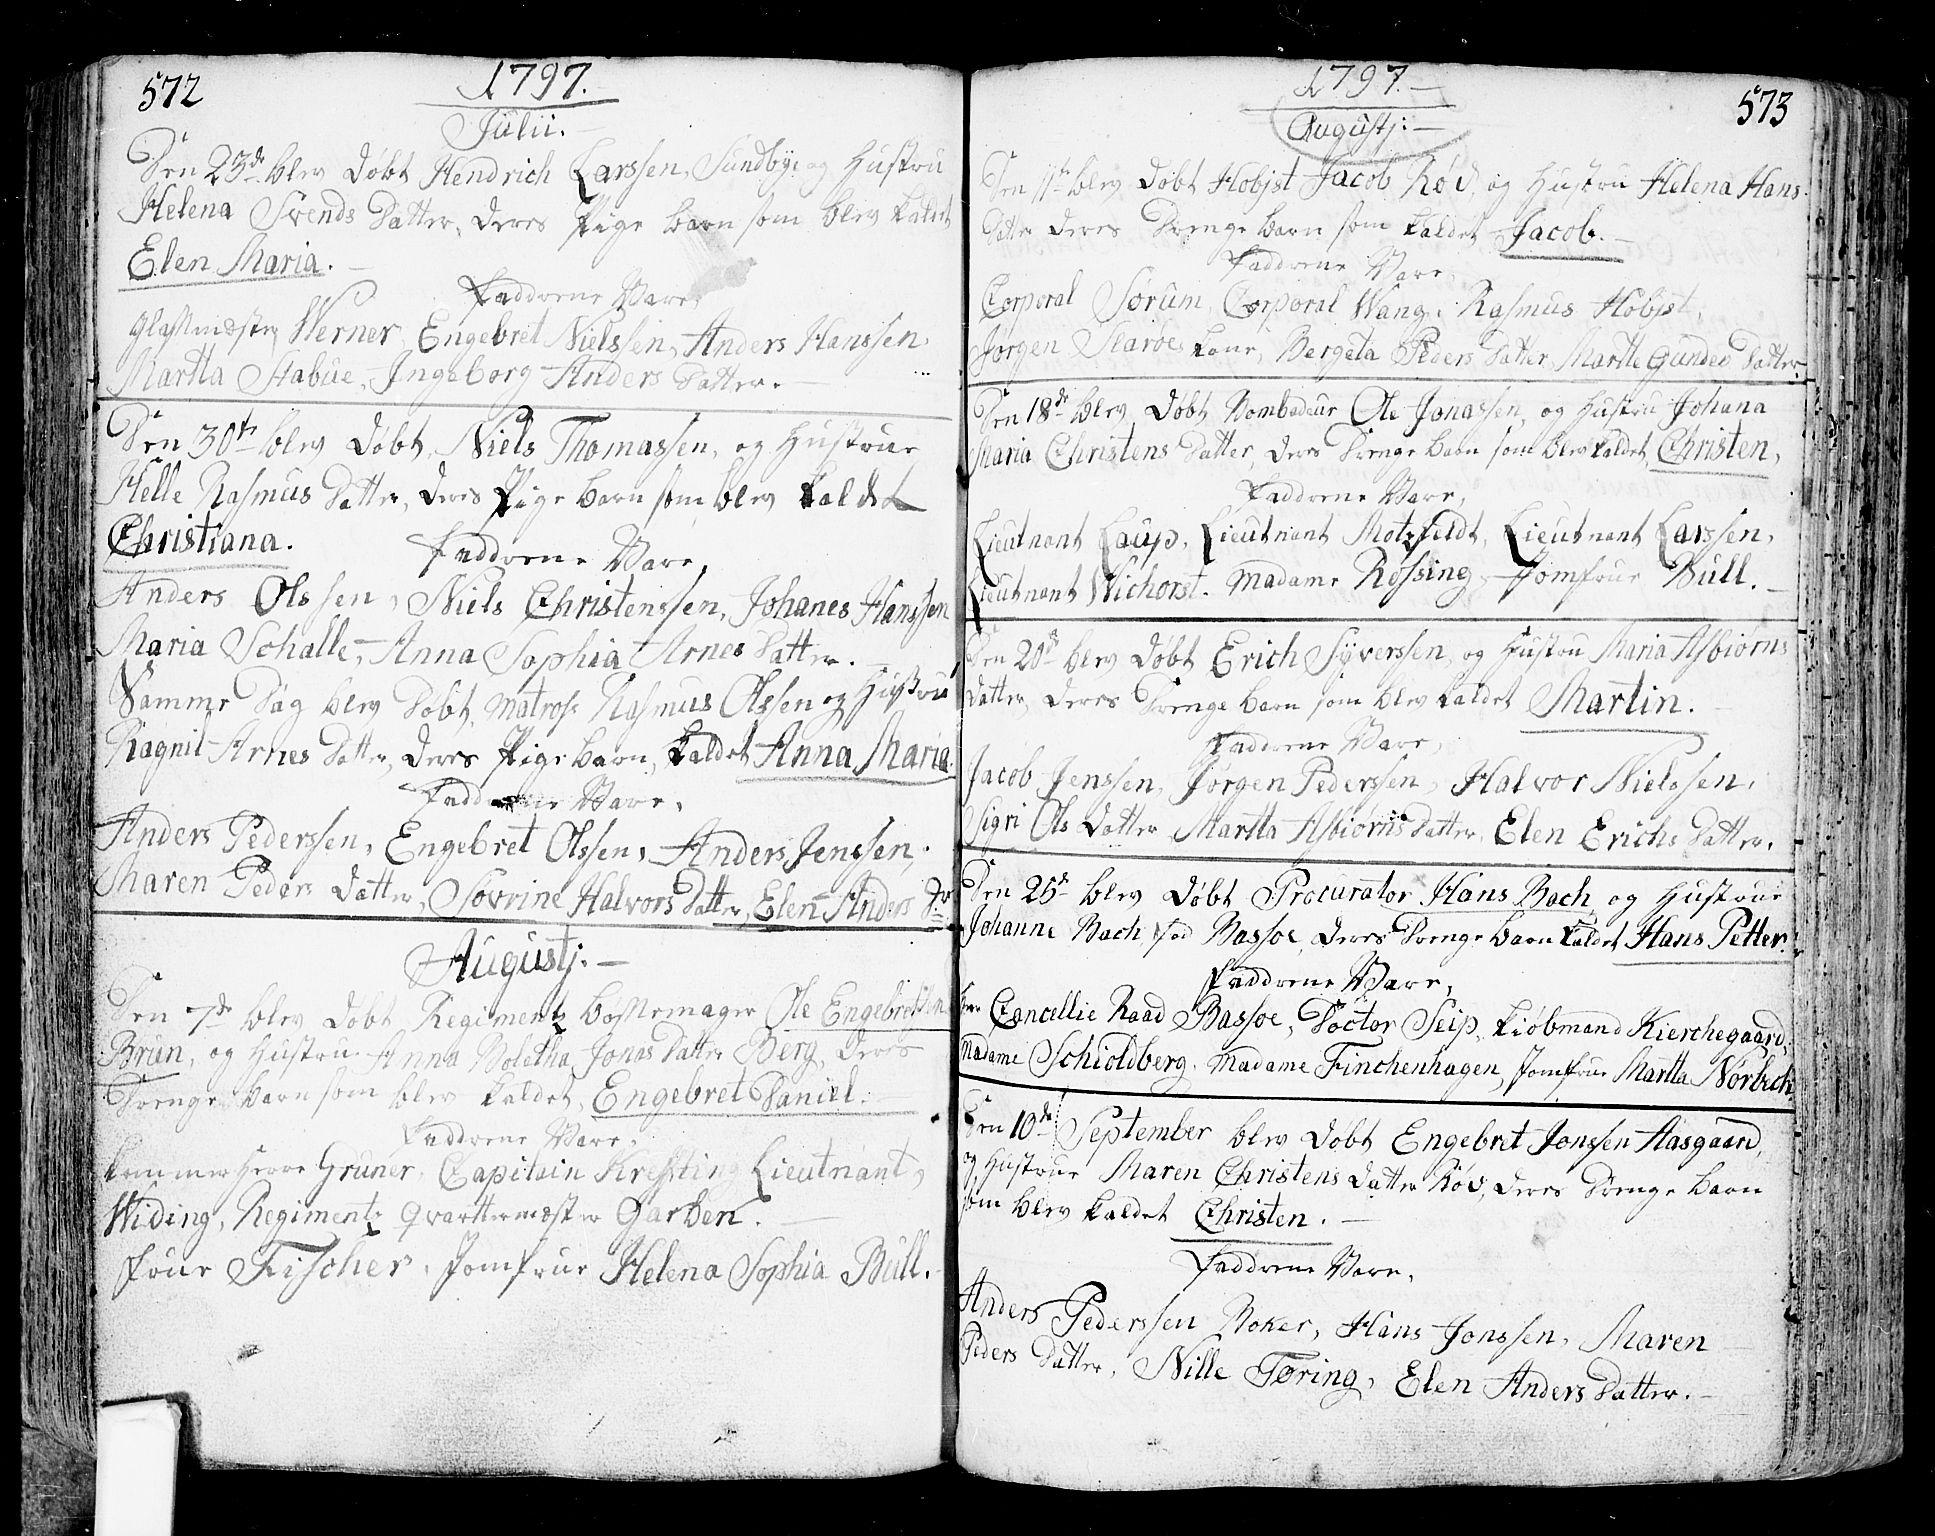 572
1797.
Julii.
Den 23de blev Døbt Hendrich Larssen, Sundbye og Hustru
Helena Svends Datter, deres Pige barn som blev kaldet
Elen Maria.
Faddrene Vare,
Glassmester Werner, Engebret Nielssen, Anders Hanssen,
Martta Stabue, Ingeborg Anders Datter.
Den 30te blev Døbt, Niels Thomassen, og Hustrue
Helle Rasmus Datter, deres Pige barn som blev kaldet
Christiana.
Faddrene Vare,
Anders Olssen, Niels Christenssen, Johanes Hanssen
Maria Schalle, Anna Sophia Arnes Datter.
Samme Dag blev Døbt, Matros Rasmus Olssen og Hustru
Ragnil Arnes Datter, deres Pige barn, kaldet Anna Maria.
Faddrene Vare,
Anders Pederssen, Engebret Olssen, Anders Jenssen,
Maren Peders Datter, Sovrine Halvors Datter, Elen Anders Dr
Augustj:
Den 7de blev Døbt Regimentz bøssemager Ole Engebretssen
Brun, og Hustru Anna Boletha Jonas Datter Berg, deres
Drenge barn som blev kaldet, Engebret Daniel.
Faddrene Vare,
Kammerherre Grüner, Capitain Kressting Lieutnant
Widing, Regimentz Qvarttermester Garben.
Frue Fischer, Jomfrue Helena Sophia Bull.
573
1797.
Augustj:
Den 11te blev Døbt Hobjst Jacob Rød, og Hustru Helena Hans
Datter deres Drenge barn som kaldet Jacob.
Faddrene Vare,
Corporal Sørum, Corporal Wang, Rasmus Hobjst,
Jørgen Skarbes kone, Bergeta Peders Datter, Martte Gunder Datter
Den 18de blev Døbt Bombadeur Ole Jonassen, og Hustru Johana
Maria Christens Datter, deres Drenge barn som blev kaldet, Christen,
Faddrene Vare,
Lieutnant Caup, Lieutnant Motzfeldt, Lieutnant Larssen,
Lieutnant Wichorst. Madame Røssing, Jomfrue Bull.
Den 20de blev Døbt Erich Syverssen, og Hustru Maria Asbiørns
datter, deres Drenge barn som blev kaldet Martin.
Faddrene Vare,
Jacob Jenssen, Jørgen Pederssen, Halvor Nielssen,
Sigri Ols Datter, Martta Asbiørns datter, Elen Erichs Datter.
Den 25de blev Døbt Procurator Hans Bach, og Hustrue
Johanne Bach, fød Bassøe, deres Drenge barn kaldet Hans Petter.
Faddrene Vare,
Herr Cancellie Raad Bassøe, Doctor Seip, kiøbmand Kierchegaard,
Madame Schioldberg. Madame Finchenhagen, Jomfrue Martta Nørbech
Den 10de September blev Døbt Engebret Jonssen Aasgaard,
og Hustrue Maren Christens Datter Rød, deres Drenge barn
som blev kaldet Christen.
Faddrene Vare,
Anders Pederssen Boker, Hans Jonssen, Maren
Peders Datter, Nille Tøring, Elen Anders Datter.